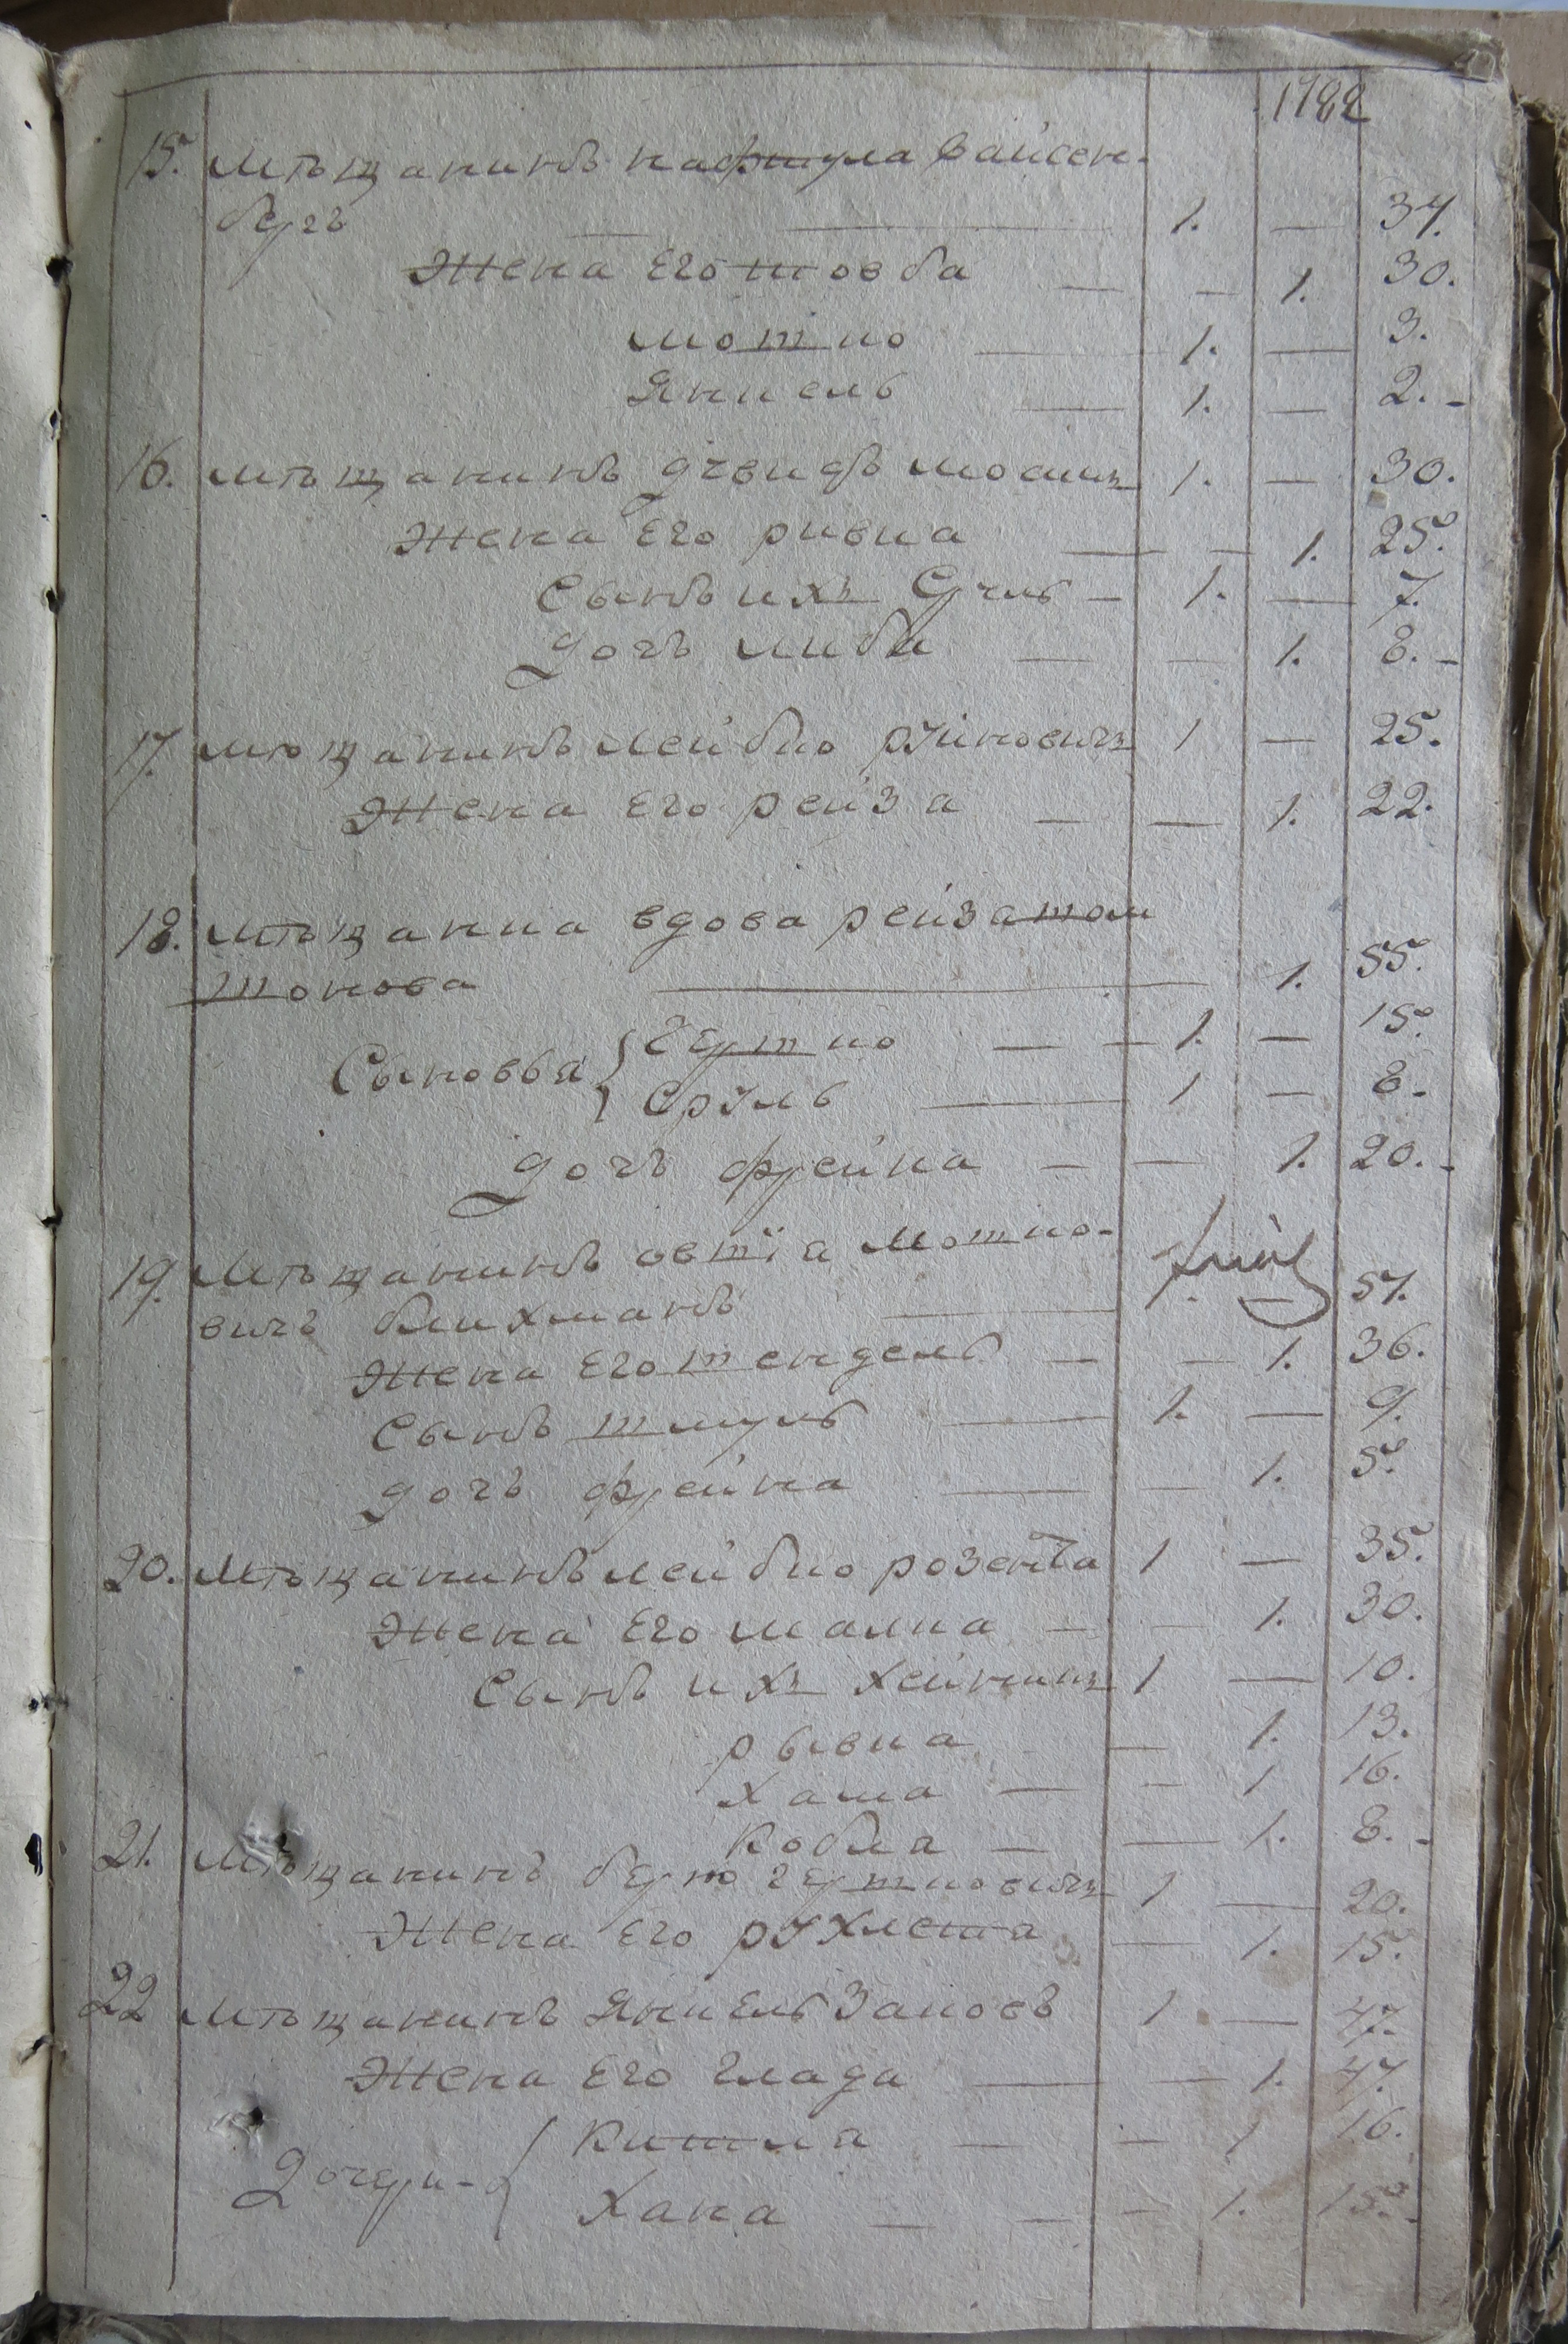 1182
15. Мѣщанинъ нафтула Вайсен-
бергъ — — 1. — 37.
Жена Его товба — — 1. 30.
мотио — 1. — 3.
Янкель — 1. — 2. -
16. мѣщанинъ давидъ 1. — 30.
Жена Его ривка — — 1. 25.
Сынъ ихъ Сруль — 1. — 7.
дочь либа — — 1. 8. -
17. мѣщанинъ лейбко 1 — 25.
Жена Его рейза — — 1. 22.
18. мѣщанка вдова рейза
— 1. 55.
Сыновья { Гершко — — 1. — 15.
Сруль — 1 — 8.
дочь фрейка — — 1. 20. -
19. Мѣщанинъ овшїа Мошко-
вичъ блихманъ — 1. — 57.
Жена Его шендель — — 1. 36.
Сынъ шмуль — 1. — 9.
дочь фрейка — — 1. 5.
20. Мѣщанинъ лейбко 1 — 35.
Жена Его малка — — 1. 30.
Сынъ ихъ 1 — 10.
рывка — 1. 13.
хана — — 1 16.
— — 1. 8. -
21. Мѣщанинъ берко гершковичъ 1 — 20.
Жена Его рухля — 1. 15.
22 мѣщанинъ Янкель 1 — 47.
Жена Его Злада — — 1. 47.
Дочери - { — — 1 16.
Хана — — — 1. 15. -